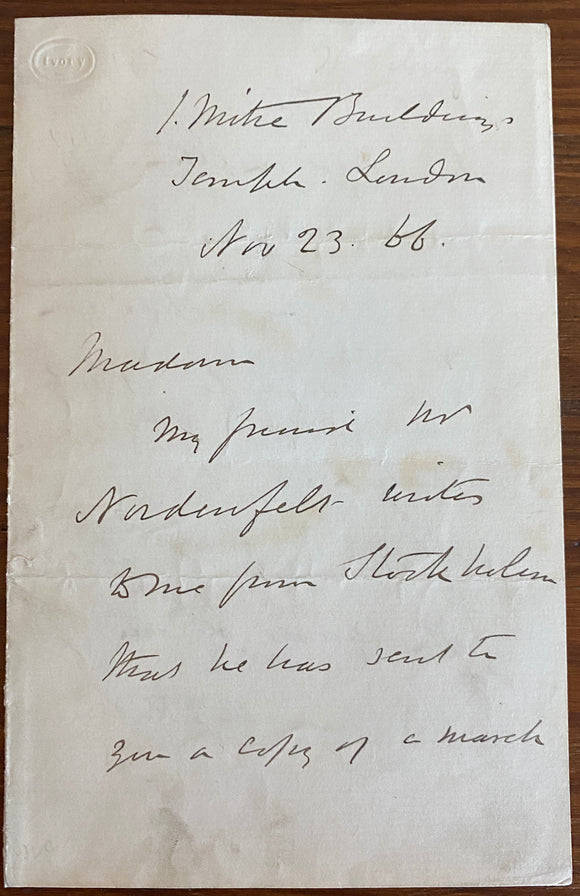 Ivory
1. Mitre Buildings
Temple. London
Nov 23. 66.
Madam
My friend Mr
Nordenfelt writes
to me from Stockholm
that he has sent to
you a copy of a march